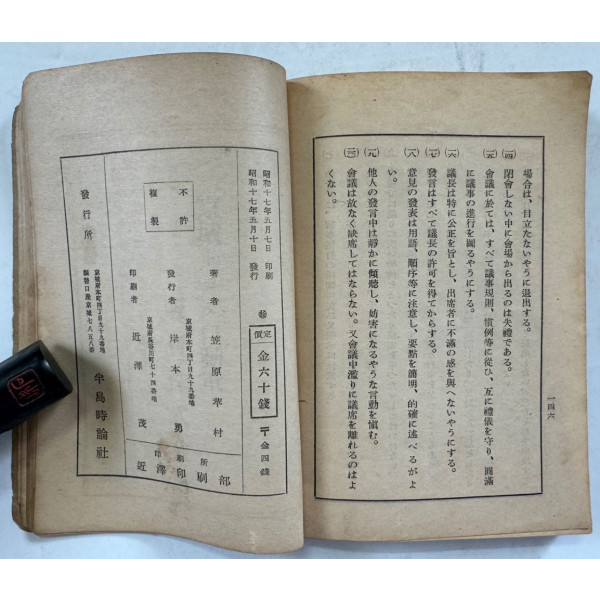 場合は、目立たないやうに退出する。
(一四) 閉會しない中に會場から出るのは失禮である。
(一五) 會議に於ては、すべて議事規則、慣例等に從ひ、互に禮儀を守り、圓滿
に議事の進行を圖るやうにする。
(一六) 議長は特に公正を旨とし、出席者に不滿の感を與へないやうにする。
(一七) 發言はすべて議長の許可を得てからする。
(一八) 意見の發表は用語、順序等に注意し、要點を簡明、的確に述べるがよ
い。
(一九) 他人の發言中は靜かに傾聽し、妨害になるやうな言動を愼む。
(二〇) 會議は故なく缺席してはならない。又會議中濫りに議席を離れるのはよ
くない。
一四六
昭和十七年五月七日 印刷
昭和十七年五月十日 發行
定價 金六十錢
〒金四錢
不許
複製
著者 笠原華村
京城府本町四丁目九十九番地
發行者 岸本勇
京城府長谷川町七十四番地
印刷者 近澤茂
印刷所 近澤印刷部
發行所
京城府本町四丁目九十九番地
振替口座京城七八五八番
半島時論社